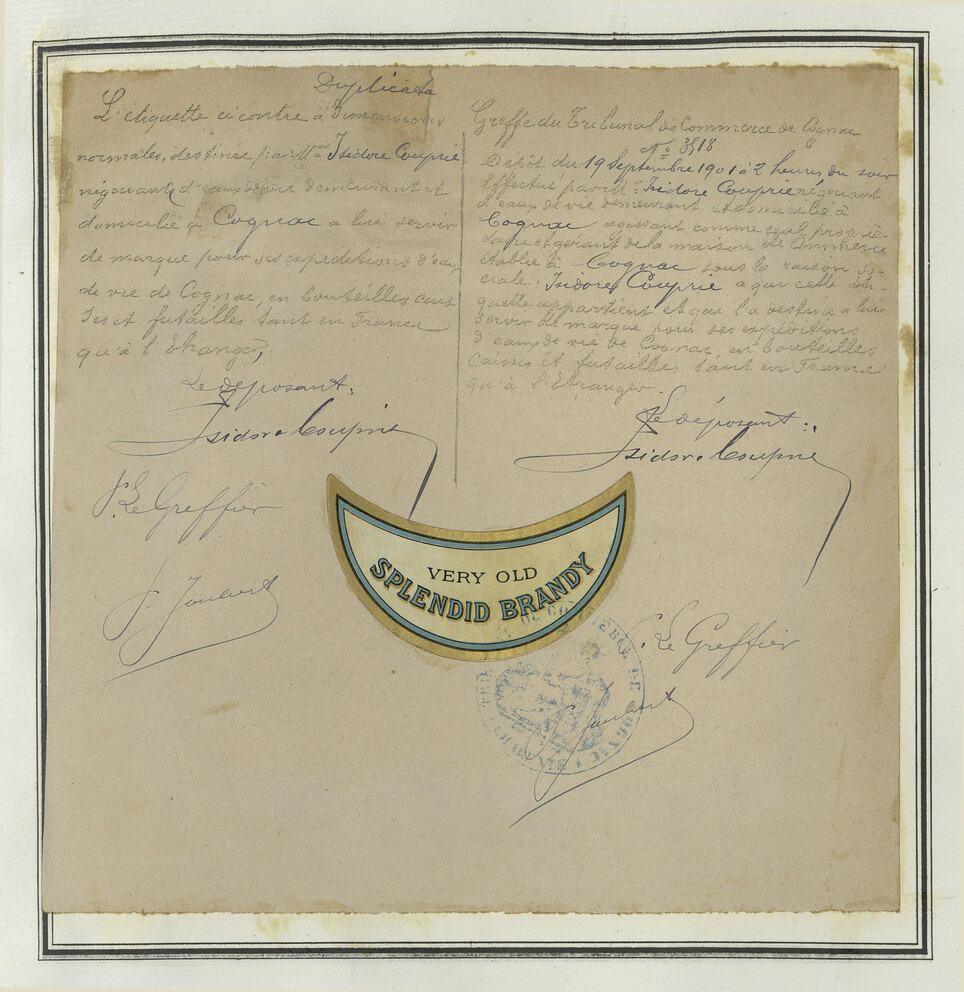 Duplicata
L'étiquette ci contre à dimensions
normales, destinée par Mr Isidore Couprié
négociant d'eau de vie demeurant et
domicilié à Cognac a lui servir
de marque pour ses expéditions d'eau
de vie de Cognac, en bouteilles cais
ses et futailles tant en France
qu'à l'Etranger,
Le déposant:
Isidore Couprié
P. Le Greffier
J. Joubert
Greffe du Tribunal de Commerce de Cognac
No 3518
Dépôt du 19 Septembre 1901 à 2 heures du soir
Effectué par Mr Isidore Couprié négociant
d'eaux de vie demeurant et domicilié à
Cognac agissant comme seul proprié-
taire et gérant de la maison de Commerce
établie à Cognac sous la raison so-
ciale: Isidore Couprié a qui cette éti-
quette appartient et que l'a destine a lui
servir de marque pour ses expéditions
d'eaux de vie de Cognac, en bouteilles
caisses et futailles tant en France
qu'à l'Etranger.
Le déposant:
Isidore Couprié
VERY OLD
SPLENDID BRANDY
P. Le Greffier
J. Joubert
DE COMMERCE DE COGNAC
CHARENTE